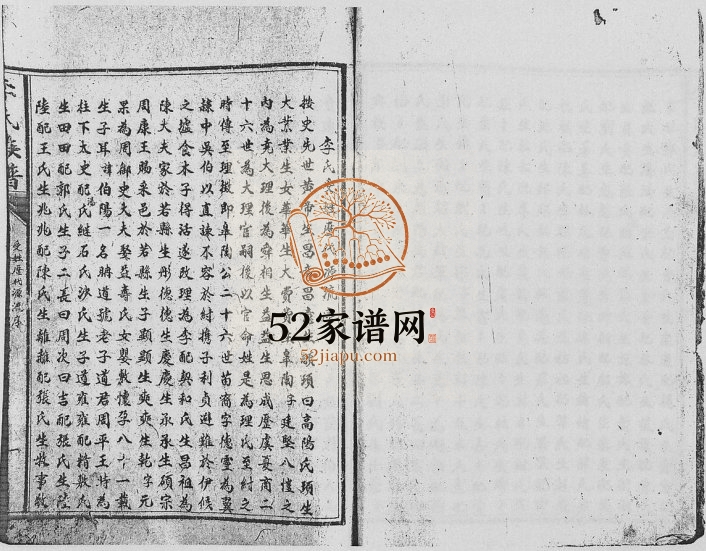 李氏受姓歷代源流
按史先世黄帝生昌意昌意生顓頊曰高陽氏頊生
大業業生女華華生大費費生臯陶字建堅八愷之
内為堯大理後為舜相生益益生思成歷虞夏商二
十六世為大理官嗣後以官命姓是為理氏至紂之
時傳至理徵即臯陶公二十六世苗裔字德靈為翼
隸中吳伯以直諫不容於紂携子利貞避難於伊侯
之墟食木子得活遂改理為李配契和氏生昌祖為
陳大夫家於若縣生彤德德生慶慶生承承生碩宗
周康王賜采邑於若縣生子顯顯生爽爽生乾字元
杲為周御史大夫娶益壽氏女嬰敷懷孕八十一載
生子耳諱伯陽一名聃道號老子道君周平王時為
柱下太史配氏継石氏沙氏生子道雍雍配精敷氏
生田田配郭氏生子二長曰周次曰吉配張氏生陸
陸配王氏生兆兆配陳氏生離離配張氏生牧事敬
李氏族譜
受姓歷代源流序
一
52家谱网
52jiapu.com